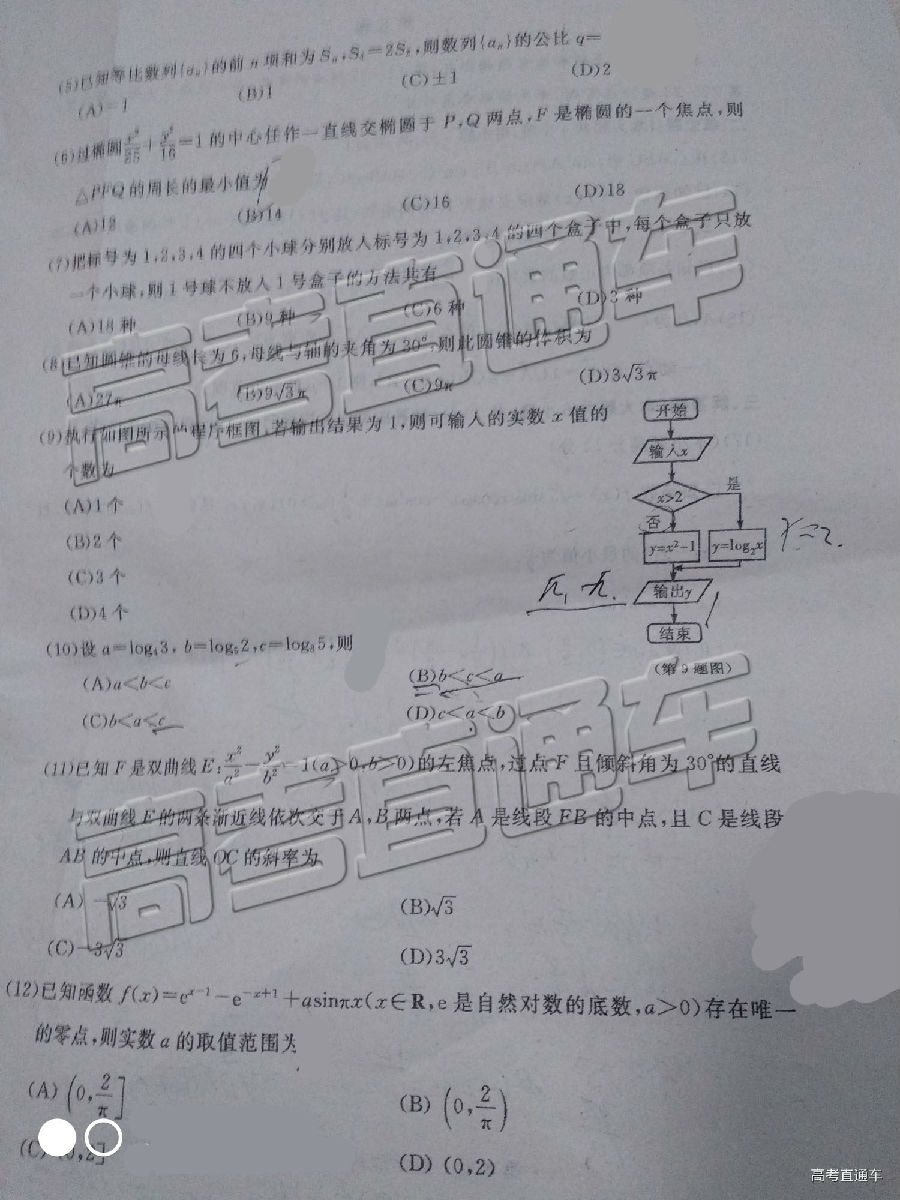 (5)已知等比数列{aₙ}的前 n 项和为 Sₙ,S₄=2S₂,则数列{aₙ}的公比 q=
(A)-1 (B)1 (C)±1 (D)2
(6)过椭圆x²/25+y²/16=1的中心任作一直线交椭圆于 P,Q 两点,F 是椭圆的一个焦点,则
△PFQ的周长的最小值为
(A)12 (B)14 (C)16 (D)18
(7)把标号为1,2,3,4的四个小球分别放入标号为1,2,3,4的四个盒子中,每个盒子只放
一个小球,则1号球不放入1号盒子的方法共有
(A)18种 (B)9种 (C)6种 (D)3种
(8)已知圆锥的母线长为6,母线与轴的夹角为30°,则此圆锥的体积为
(A)27π (B)9√3π (C)9π (D)3√3π
(9)执行如图所示的程序框图,若输出结果为1,则可输入的实数 x 值的
个数为
(A)1个
(B)2个
(C)3个
(D)4个
开始
输入x
x>2
是
否
y=x²-1 y=log₂x
输出y
结束
(第9题图)
(10)设 a=log₄3, b=log₅2,c=log₈5,则
(A)a<b<c (B)b<c<a
(C)b<a<c (D)c<a<b
(11)已知 F 是双曲线E:x²/a²-y²/b²=1(a>0,b>0)的左焦点,过点 F 且倾斜角为30°的直线
与双曲线E的两条渐近线依次交于A,B两点,若 A 是线段 FB 的中点,且 C 是线段
AB的中点,则直线OC的斜率为
(A)-√3 (B)√3
(C)-3√3 (D)3√3
(12)已知函数 f(x)=eˣ⁻¹-e⁻ˣ⁺¹+asinπx(x∈R,e是自然对数的底数,a>0)存在唯一
的零点,则实数 a 的取值范围为
(A) (0,2/π] (B) (0,2/π)
(C) (0,2] (D) (0,2)
高考直通车
高考直通车
高考直通车